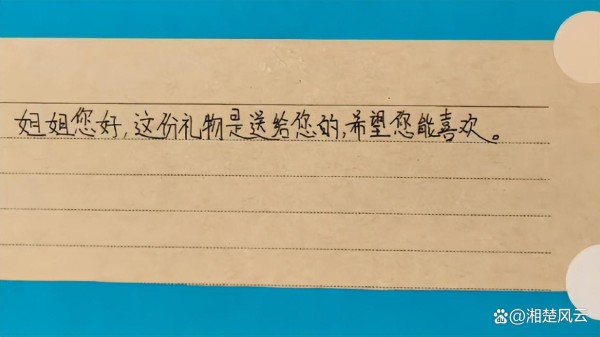 姐姐您好,这份礼物是送给您的,希望您能喜欢。
@湘楚风云